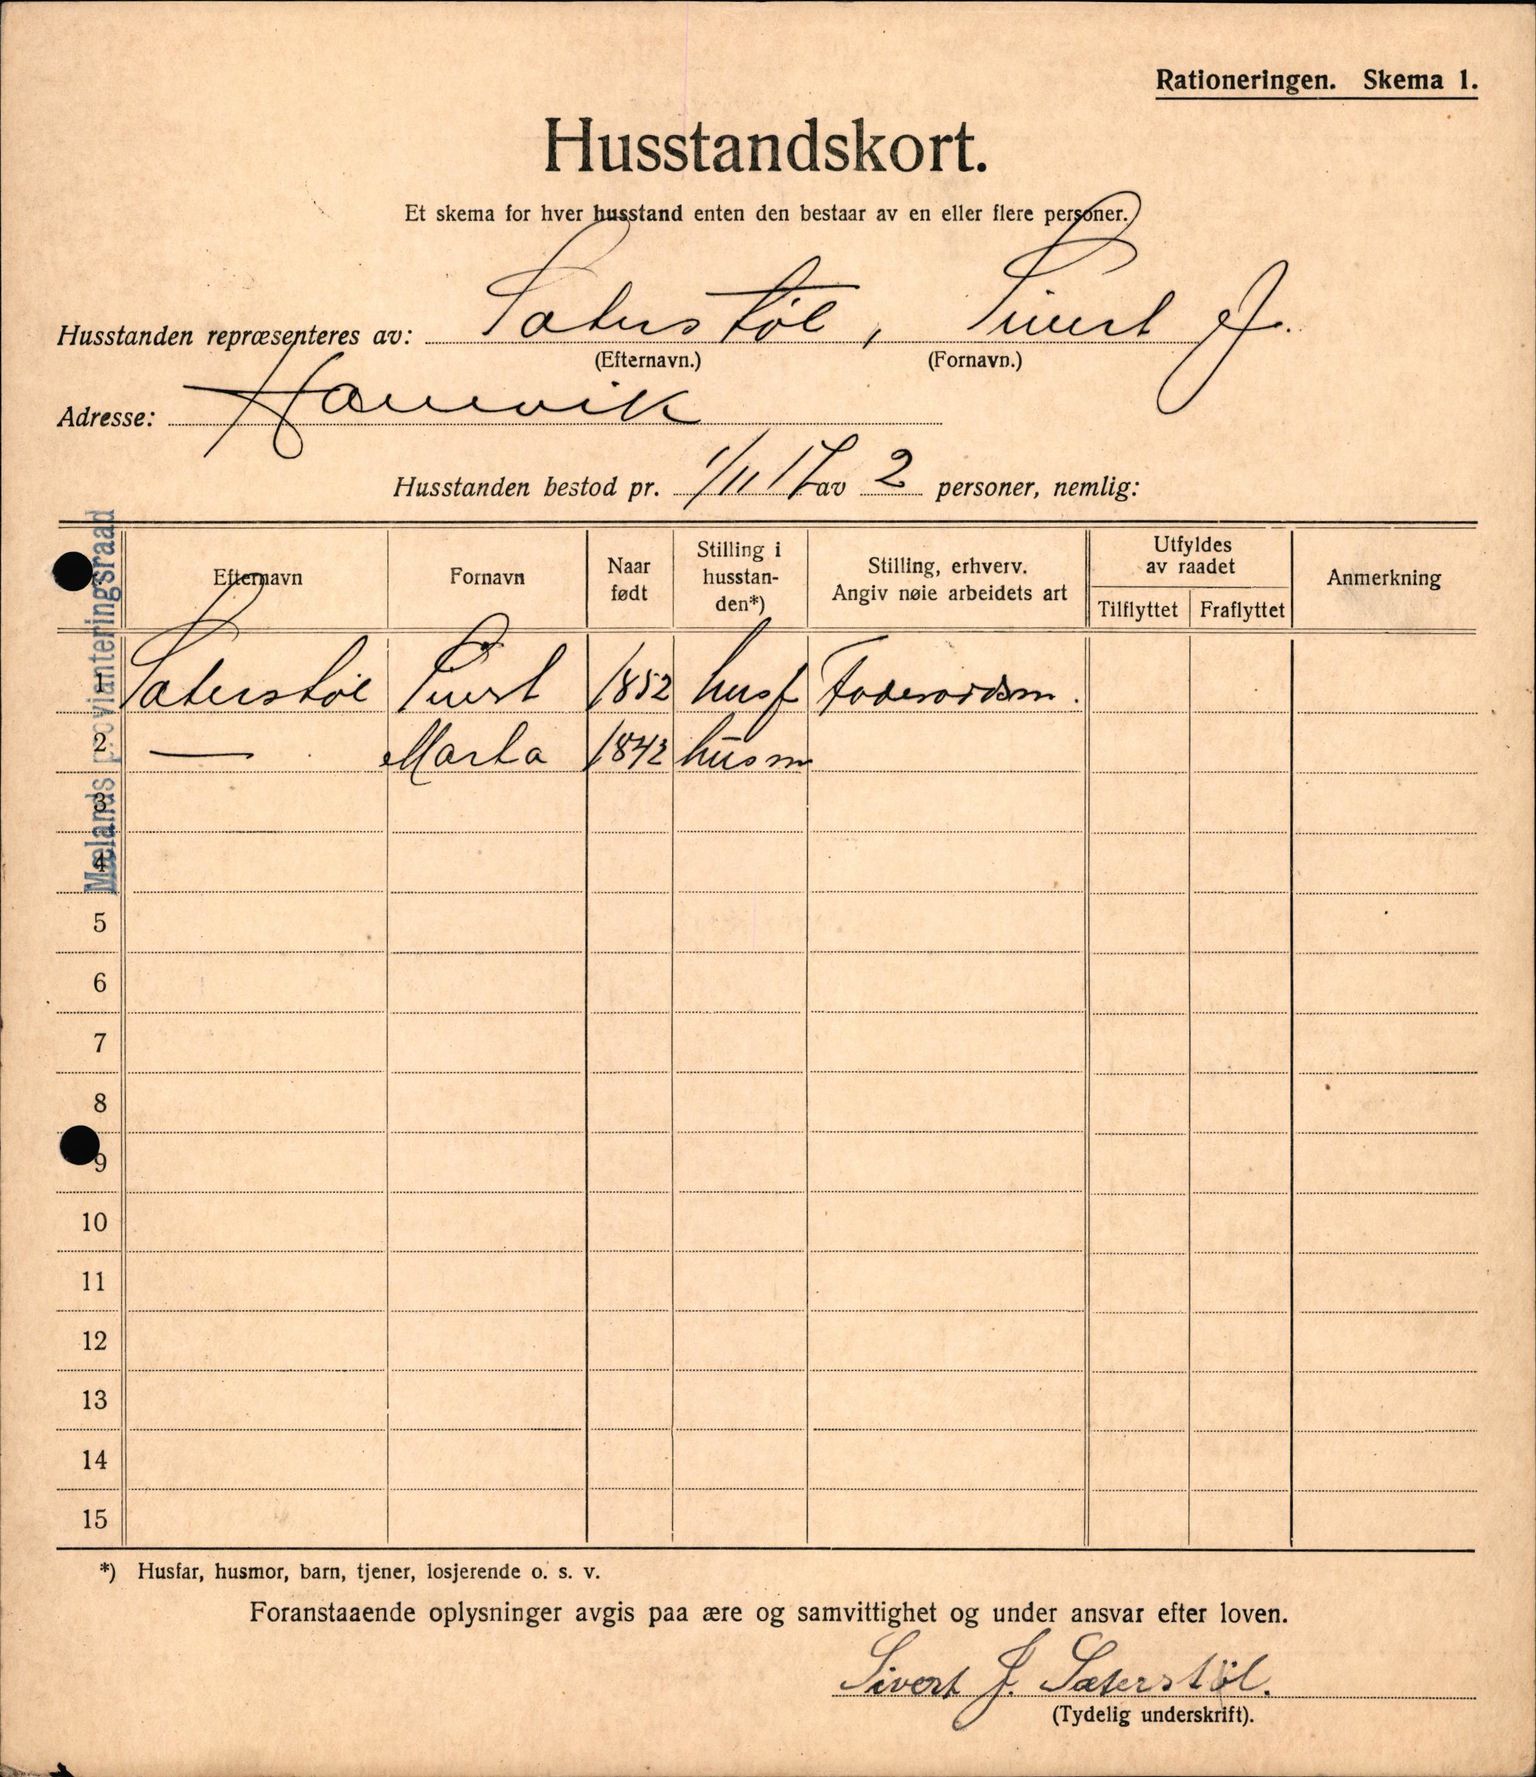 Rationeringen. Skema 1.
Husstandskort.
Et skema for hver husstand enten den bestaar av en eller flere personer.
Husstanden repræsenteres av: Sæterstøl, Sivert J.
(Efternavn.) (Fornavn.)
Adresse: Havnevik
Husstanden bestod pr. 1/11 17 av 2 personer, nemlig:
Mælands provianteringsraad
Efternavn Fornavn Naar født Stilling i husstanden*) Stilling, erhverv. Angiv nøie arbeidets art Utfyldes av raadet Tilflyttet Fraflyttet Anmerkning
1 Sæterstøl Sivert 1852 husf Foderaadsm.
2 — Marta 1842 husm
3
4
5
6
7
8
9
10
11
12
13
14
15
*) Husfar, husmor, barn, tjener, losjerende o. s. v.
Foranstaaende oplysninger avgis paa ære og samvittighet og under ansvar efter loven.
Sivert J. Sæterstøl.
(Tydelig underskrift).